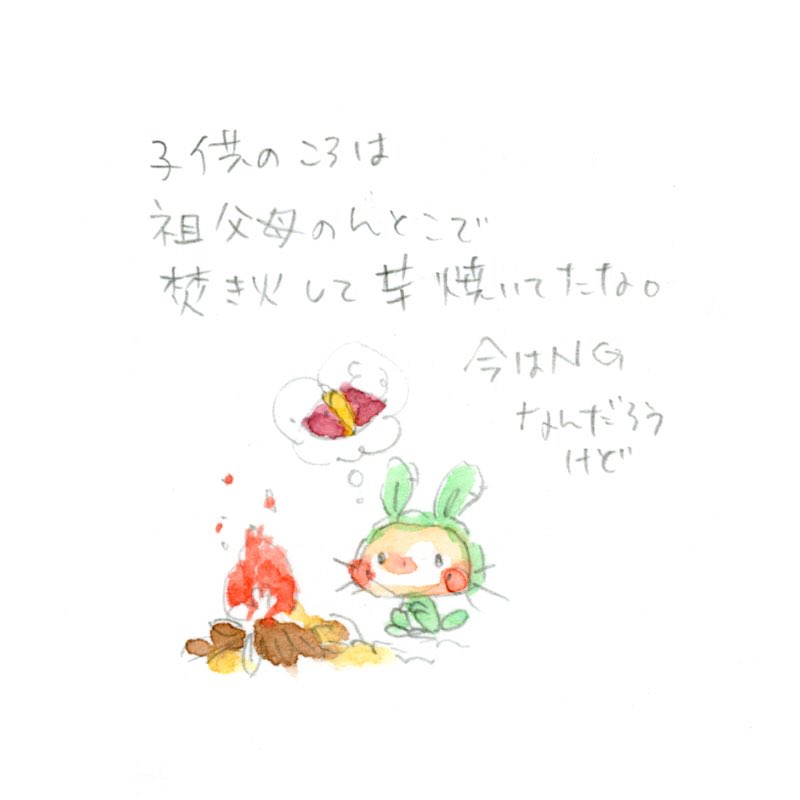 子供のころは
祖父母のんとこで
焚き火して芋焼いてたな。
今はNG
なんだろう
けど